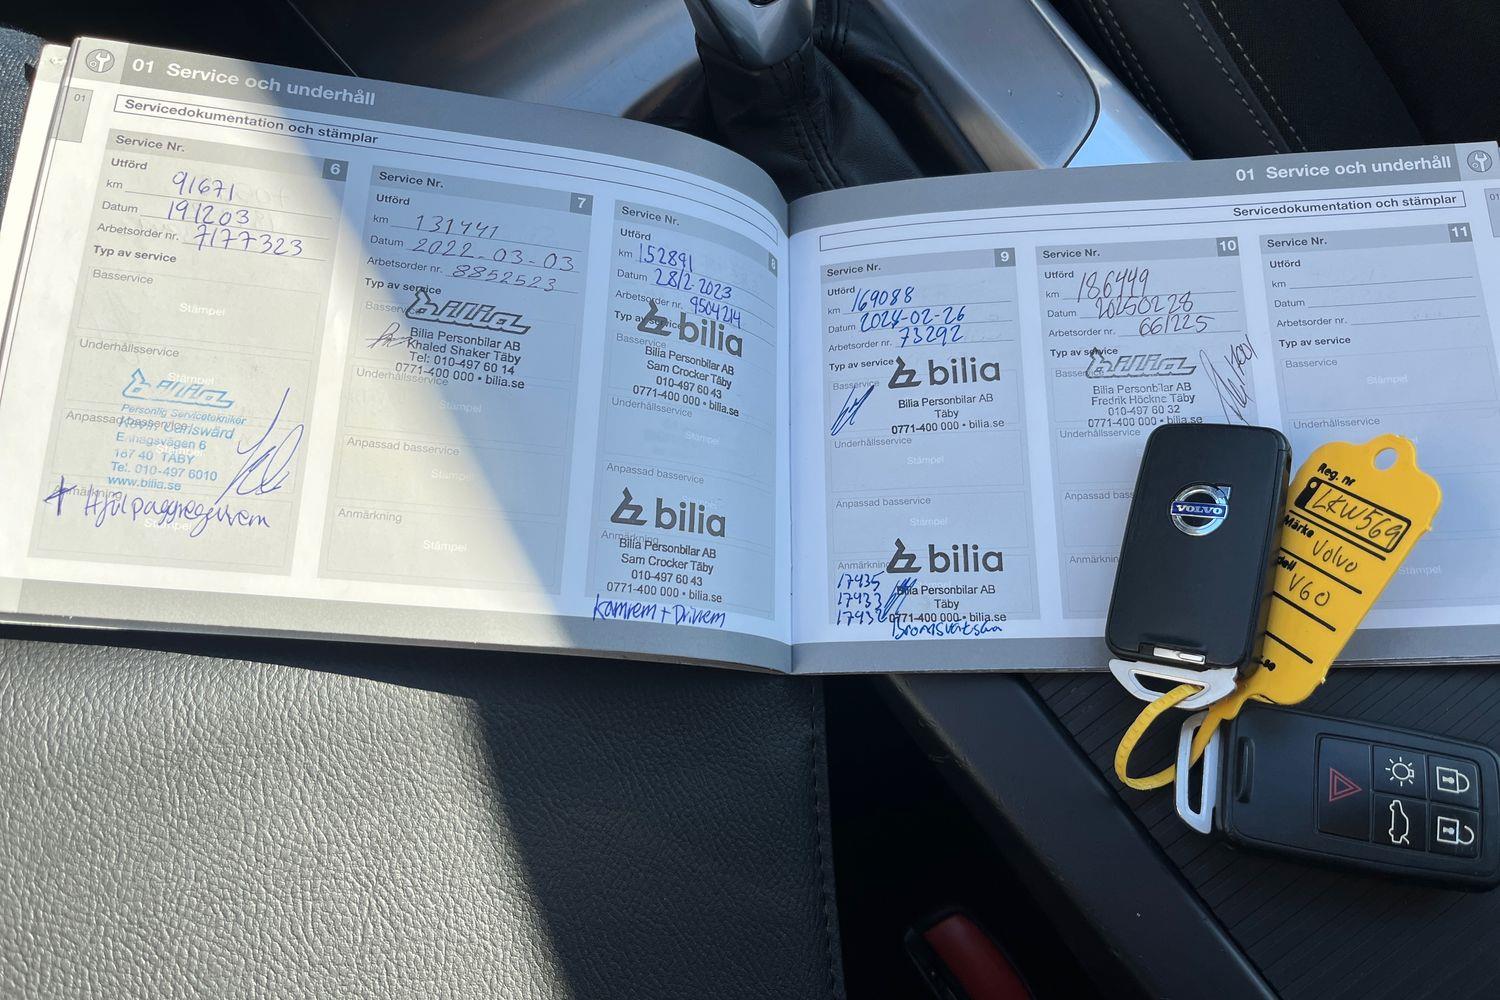 01 Service och underhåll
Servicedokumentation och stämplar
01
Service Nr.
6
Utförd
km 91671
Datum 191203
Arbetsorder nr. 7177323
Typ av service
Basservice
Stämpel
Underhållsservice
Stämpel
BILIA
Personlig Servicetekniker
Anpassad basservice
Kevin Carlswärd
Enhagsvägen 6
187 40 TÄBY
Tel. 010-497 6010
www.bilia.se
Anmärkning
+ Hjälpaggregatrem
Stämpel
Service Nr.
7
Utförd
km 131441
Datum 2022-03-03
Arbetsorder nr. 8852523
Typ av service
Basservice
Bilia
Bilia Personbilar AB
Khaled Shaker Täby
Tel: 010-497 60 14
0771-400 000 • bilia.se
Underhållsservice
Stämpel
Anpassad basservice
Stämpel
Anmärkning
Stämpel
Service Nr.
8
Utförd
km 152891
Datum 28/2-2023
Arbetsorder nr. 9504214
Typ av service
Basservice
bilia
Bilia Personbilar AB
Sam Crocker Täby
010-497 60 43
0771-400 000 • bilia.se
Underhållsservice
Stämpel
Anpassad basservice
Stämpel
bilia
Anmärkning
Bilia Personbilar AB
Sam Crocker Täby
010-497 60 43
0771-400 000 • bilia.se
Kamrem + Drivrem
01 Service och underhåll
Servicedokumentation och stämplar
01
Service Nr.
9
Utförd
km 169088
Datum 2024-02-26
Arbetsorder nr. 73292
Typ av service
Basservice
bilia
Bilia Personbilar AB
Täby
0771-400 000 • bilia.se
Underhållsservice
Stämpel
Anpassad basservice
Stämpel
bilia
Anmärkning
17435
17433
Bilia Personbilar AB
Täby
0771-400 000 • bilia.se
Bromsvätska
Service Nr.
10
Utförd
km 186449
Datum 20250228
Arbetsorder nr. 661225
Typ av service
Bilia
Bilia Personbilar AB
Fredrik Höckne Täby
010-497 60 32
0771-400 000 • bilia.se
Underhållsservice
Anpassad basservice
Anmärkning
Service Nr.
11
Utförd
km
Datum
Arbetsorder nr.
Typ av service
Basservice
Stämpel
Underhållsservice
Stämpel
VOLVO
Reg. nr
LKW569
Märke
Volvo
V60